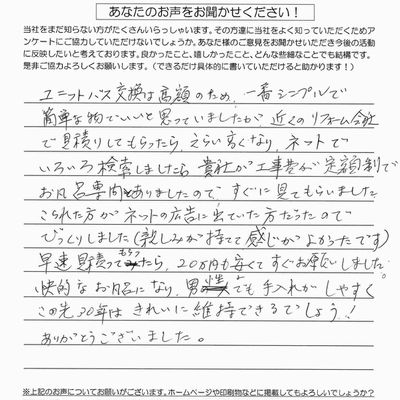 あなたのお声をお聞かせください！
当社をまだ知らない方がたくさんいらっしゃいます。その方達に当社をよく知っていただくためア
ンケートにご協力していただけないでしょうか。あなた様のご意見をお聞かせいただき今後の活動
に反映したいと考えております。良かったこと、困ったこと、どんな些細なことでも結構です。
是非ご協力よろしくお願いします。（できるだけ具体的に書いていただけると助かります！）
ユニットバス交換は高額のため、一番シンプルで
簡単な物でいいと思っていましたが近くのリフォーム会社
で見積りしてもらったら、えらい高くなり、ネットで
いろいろ検索しましたら貴社が工事費が定額制で
お風呂専門とありましたので、すぐに見てもらいました
こられた方がネットの広告に出ていた方だったので
びっくりしました（親しみが持てて感じがよかったです）
早速見積ってもらったら、20万円も安くてすぐお願いしました。
快的なお風呂になり、男性でも手入れがしやすく
この先30年はきれいに維持できるでしょう！
ありがとうございました。
※上記のお声についてお願いがございます。ホームページや印刷物などに掲載してもよろしいでしょうか？